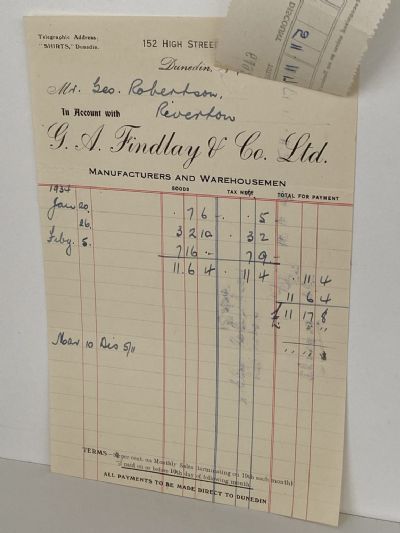 Telegraphic Address:
"SHIRTS," Dunedin.
152 HIGH STREET
DISCOUNT
Dunedin,
Mr. Geo. Robertson,
Riverton
In Account with
G. A. Findlay & Co. Ltd.
MANUFACTURERS AND WAREHOUSEMEN
GOODS TAX TOTAL FOR PAYMENT
Jan 20. . 7 6 - . 5
26. 3 2 10 . 3 2
Feby. 5. 7 16 - 7 9
11 6 4 . 11 4
. 11 4
11 6 4
11 17 8
Mar 10 Dis 5/11
TERMS— per cent. on Monthly Sales (terminating on 19th each month)
if paid on or before 10th day of following month.
ALL PAYMENTS TO BE MADE DIRECT TO DUNEDIN